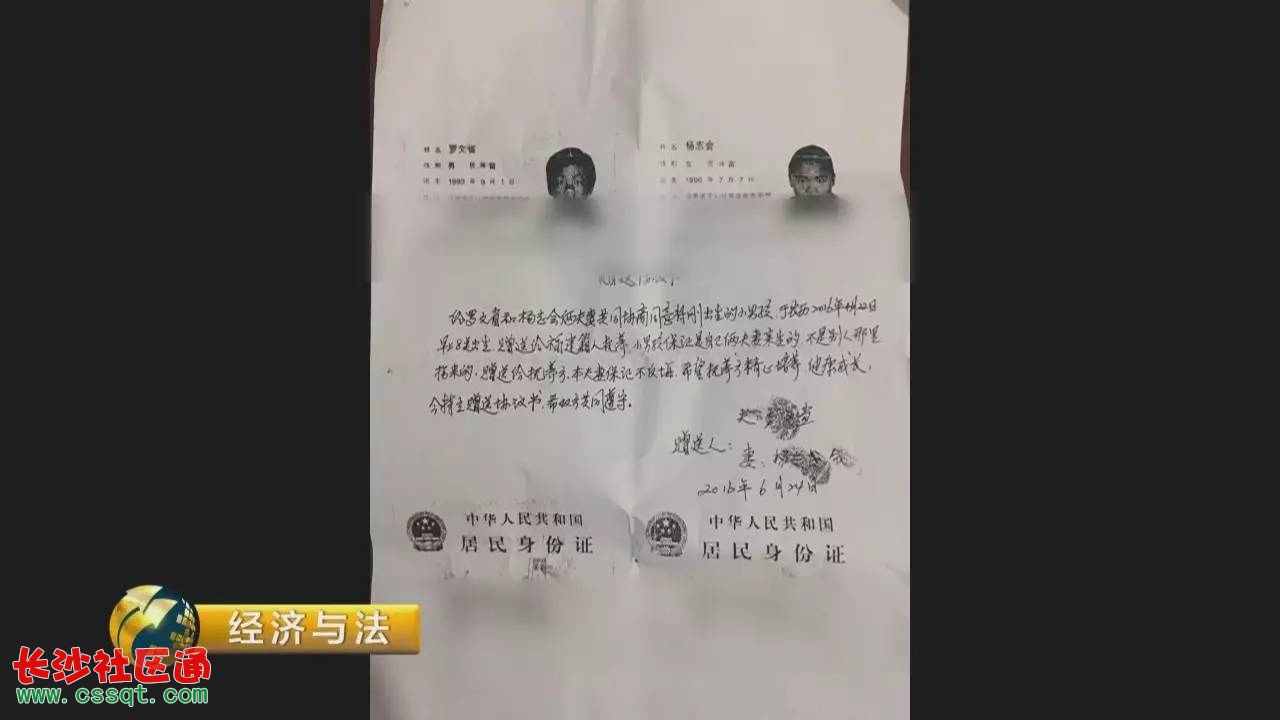 姓名 罗文省
姓名 杨志会
性别 男 民族 苗
性别 女 民族 苗
出生 1993 年 9 月 1 日
出生 1996 年 7 月 7 日
夫妻共同协商同意将刚出生的小男孩,于农历2016年4月22日
早上8点出生,赠送给福建籍人抚养,小男孩保证是自己俩夫妻亲生的,不是别人那里
拐来的,赠送给抚养方,本夫妻保证不反悔,希望抚养方精心培养,健康成长。
今特立赠送协议书,希双方共同遵守。
赠送人:
夫
妻:杨
2016年6月24日
中华人民共和国
居民身份证
中华人民共和国
居民身份证
经济与法
长沙社区通
www.cssqt.com